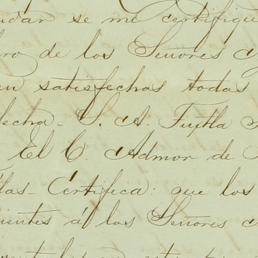 dar se me certifique
ro de los Señores
en satisfechas todas
fecha. S. A. Tuxtla
El C. Admor de
las Certifica: que los
entes á los Señores